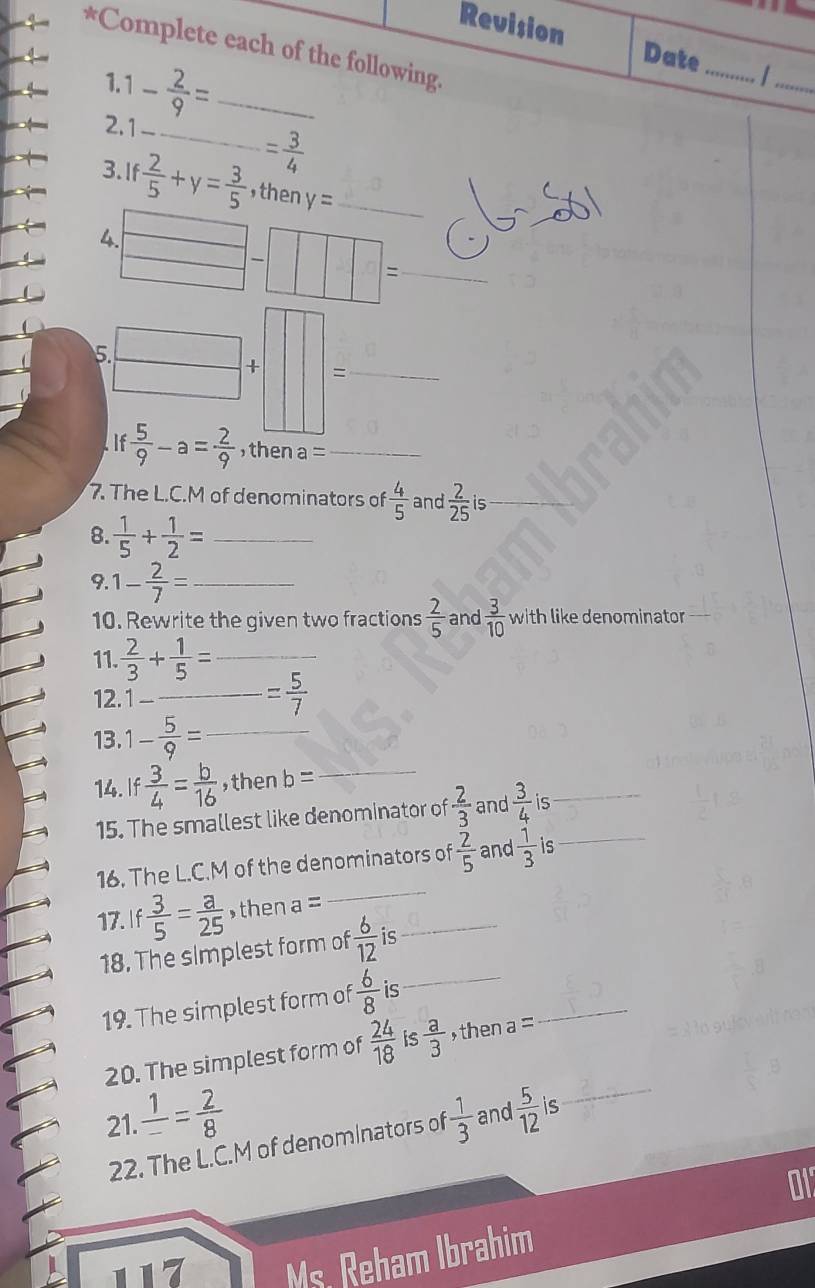 Revision
Date ......... / .......
*Complete each of the following.
1. 1 - 2/9 = ________
2. 1 - ________ = 3/4
3. If 2/5 + y = 3/5, then y = ________
4. - = ________
5. + = ________
. If 5/9 - a = 2/9, then a = ________
7. The L.C.M of denominators of 4/5 and 2/25 is ________
8. 1/5 + 1/2 = ________
9. 1 - 2/7 = ________
10. Rewrite the given two fractions 2/5 and 3/10 with like denominator ____
11. 2/3 + 1/5 = ________
12. 1 - ________ = 5/7
13. 1 - 5/9 = ________
14. If 3/4 = b/16, then b = ________
15. The smallest like denominator of 2/3 and 3/4 is ________
16. The L.C.M of the denominators of 2/5 and 1/3 is ________
17. If 3/5 = a/25, then a = ________
18. The simplest form of 6/12 is ________
19. The simplest form of 6/8 is ________
20. The simplest form of 24/18 is a/3, then a = ________
21. 1/__ = 2/8
22. The L.C.M of denominators of 1/3 and 5/12 is ________
Ms. Reham Ibrahim
117
Ms. Reham Ibrahim